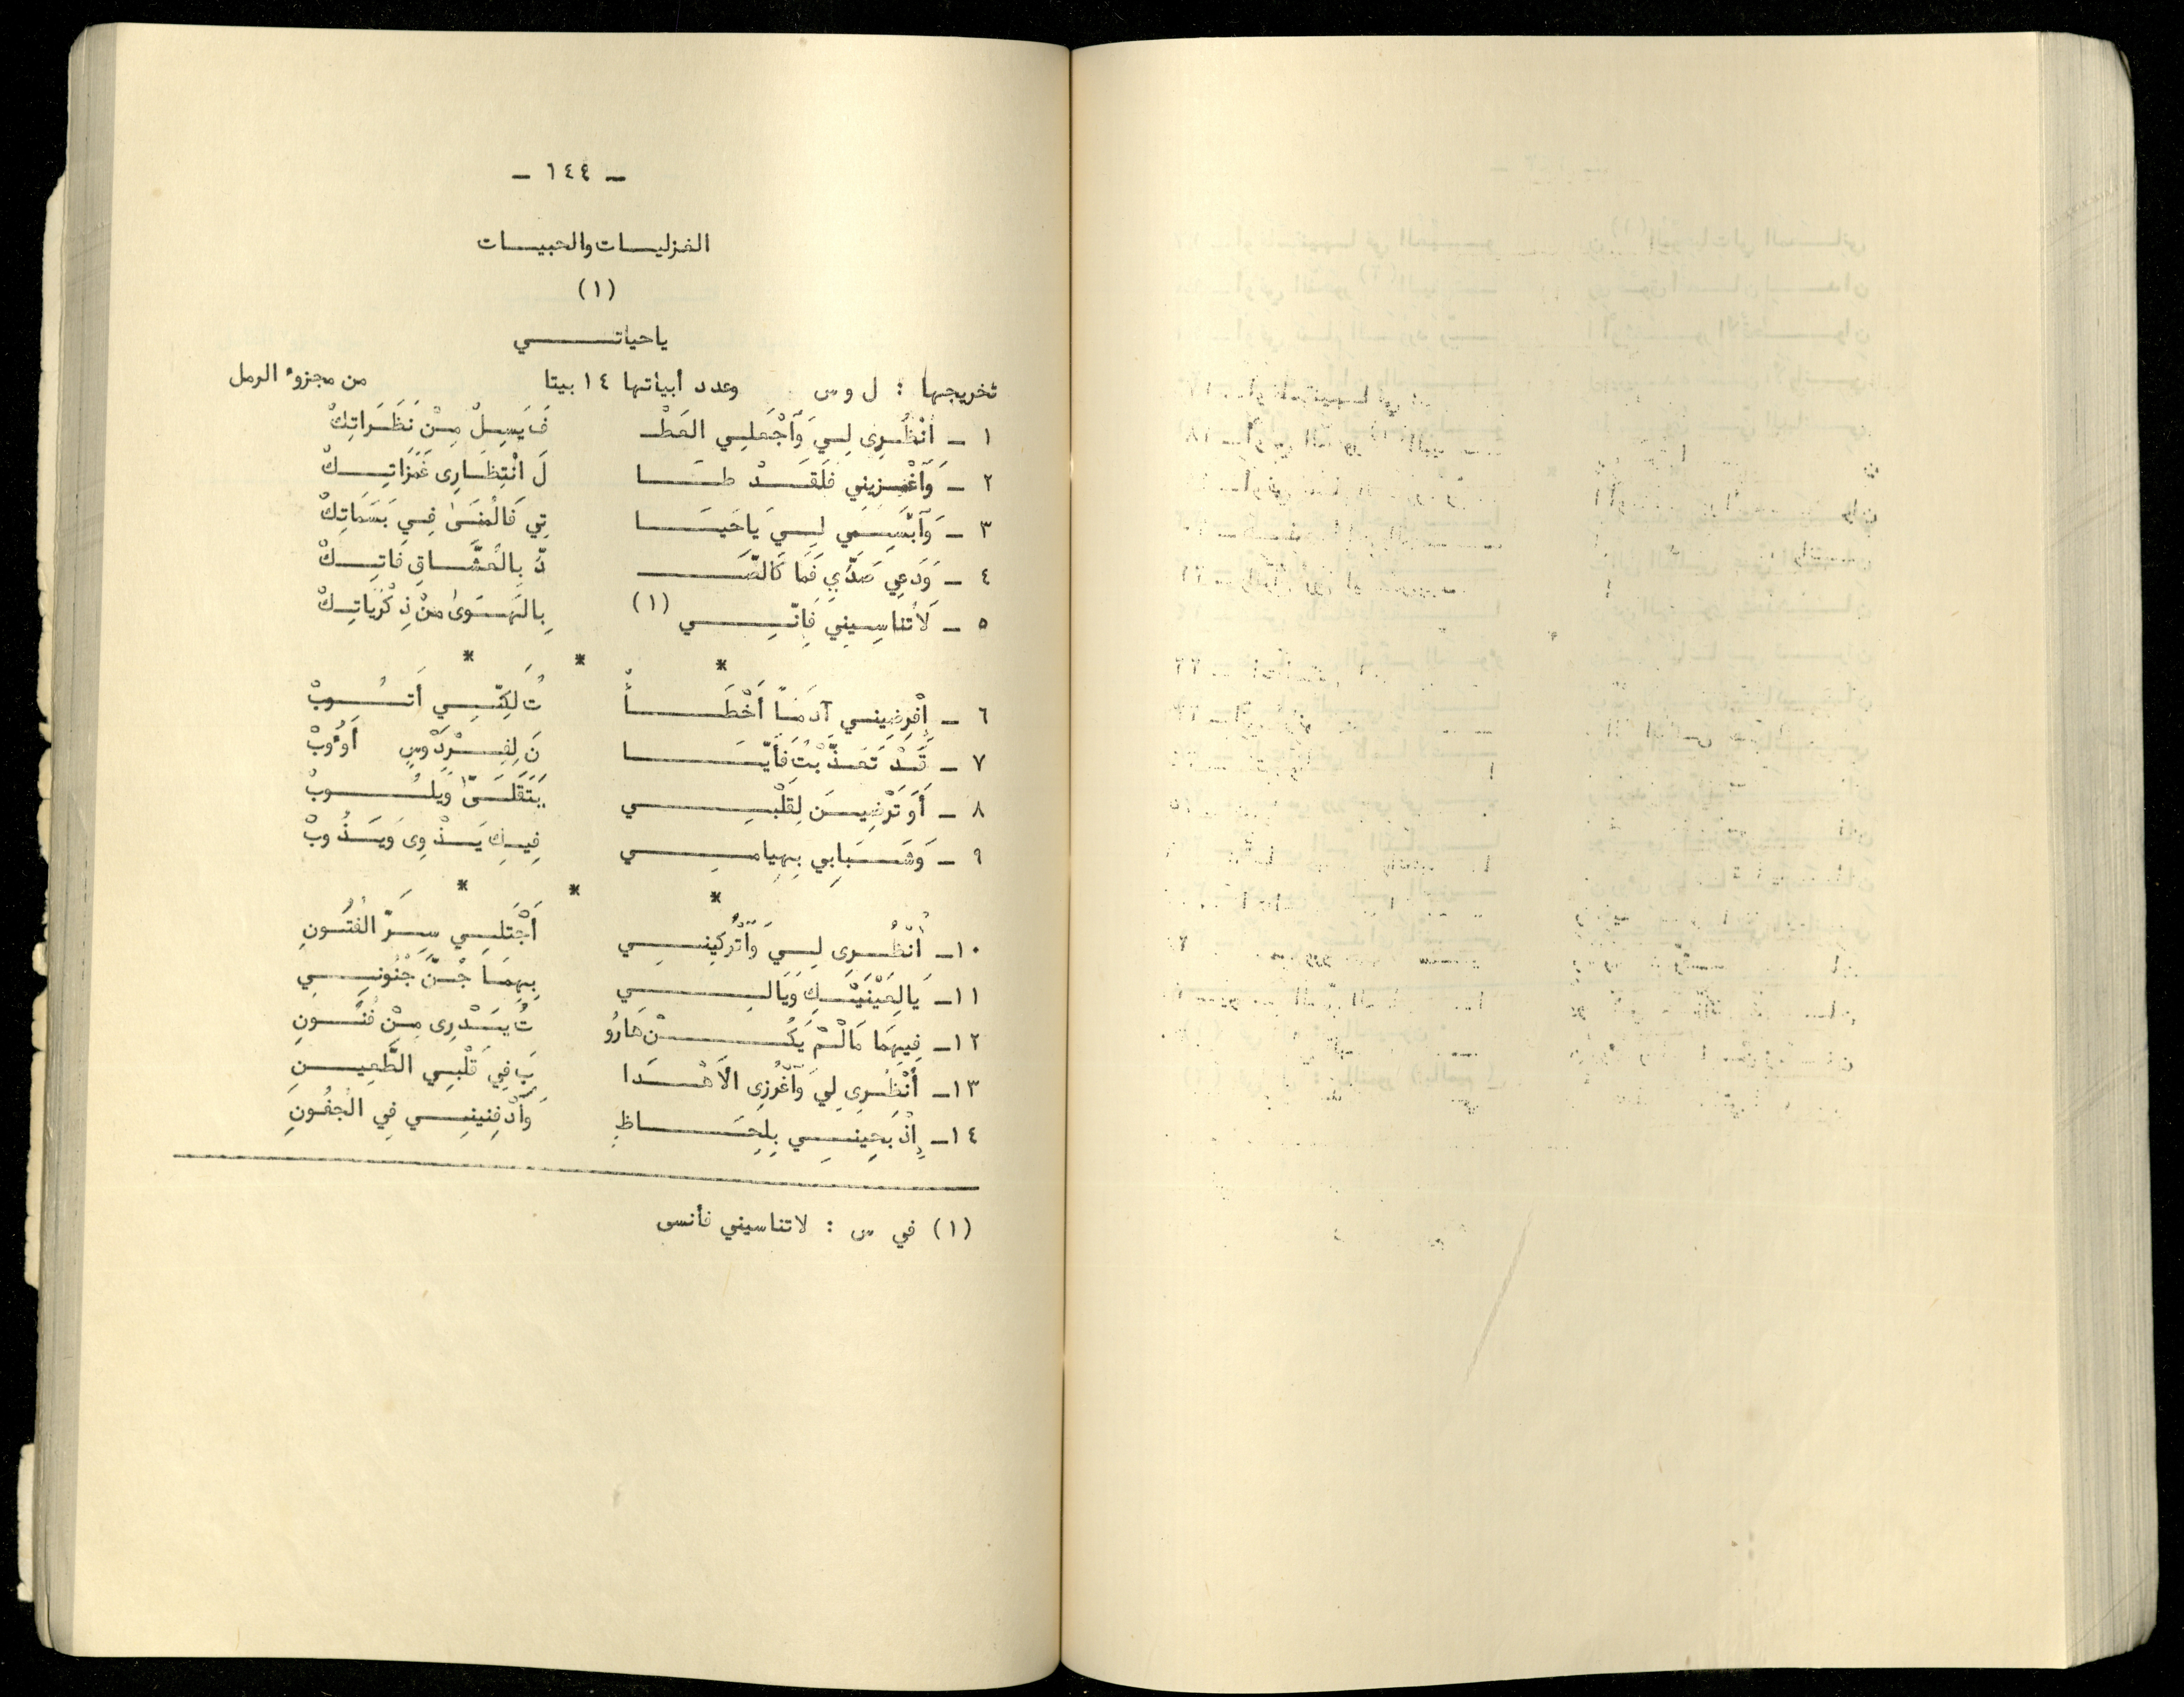 - ١٤٤ -
الغزليات والحبيبات
(١)
ياحياتي
تخريجها : ل وس وعدد أبياتها ١٤ بيتا من مجزوء الرمل
١ - اُنْظُرِى لِيَ وَاَجْعَلِي العَطْـ فَ يَسِلْ مِنْ نَظَرَاتِكْ
٢ - وَاَغْمِزِينِي فَلَقَدْ طَا لَ انْتِظَارِى غَمَزَاتِكْ
٣ - وَاَبْسِمِي لِيَ يَاحَيَا تِي فَالْمُنَىٰ فِي بَسَمَاتِكْ
٤ - وَدَعِي صَدِّي فَمَا كَالصَّـ دِّ بِالعُشَّاقِ فَاتِكْ
٥ - لَاتَناسِينِي فَإِنّي (١) بِالهَوَىٰ مِنْ ذِكْرَيَاتِكْ
* * *
٦ - اِفْرِضِيني آدَمَاً أَخْطَأْ تُ لَكِنّي أَتُوبْ
٧ - قَدْ تَعَذَّبْتُ فَأَيَّا نَ لِفِرْدَوْسٍ أَوُوبْ
٨ - أَوَ تَرْضِينَ لِقَلْبِي يَتَقَلَّىٰ وَيَلُوبْ
٩ - وَشَبَابِي بِهِيامِي فِيكِ يَذْوِى وَيَذُوبْ
* * *
١٠- اُنْظُرِى لِيَ وَاُتْرُكِينِي أَجْتَلِي سِرَّ الْفُتُونِ
١١- يَالِعَيْنَيْكِ وَيَالِي بِهِمَا جُنَّ جُنُونِي
١٢- فِيهِمَا مَالَمْ يَكُنْ هَارُو تُ يَدْرِى مِنْ فُنُونِ
١٣- اُنْظُرِى لِيَ وَاَغْرُزِى الاَهْدَا بَ فِي قَلْبِي الطَّعِينِ
١٤- اِذْبَحِينِي بِلِحَاظٍ وَاَدْفِنِينِي فِي الْجفُونِ
(١) في س : لاتناسيني فأنسى